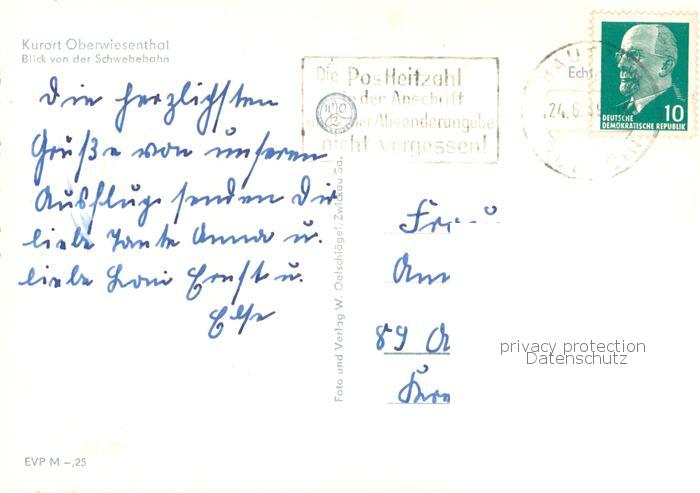 Kurort Oberwiesenthal
Blick von der Schwebebahn
Die Postleitzahl
in der Anschrift
Absenderangabe
nicht vergessen!
24.6.
DEUTSCHE
DEMOKRATISCHE REPUBLIK
10
Die herzlichsten
Grüße von unserem
Ausfluge senden Dir
liebe Tante Anna u.
liebe Loni Ernst u.
Else
Foto und Verlag W. Oelschlägel, Zwickau Sa.
Frau
89
privacy protection
Datenschutz
EVP M -,25